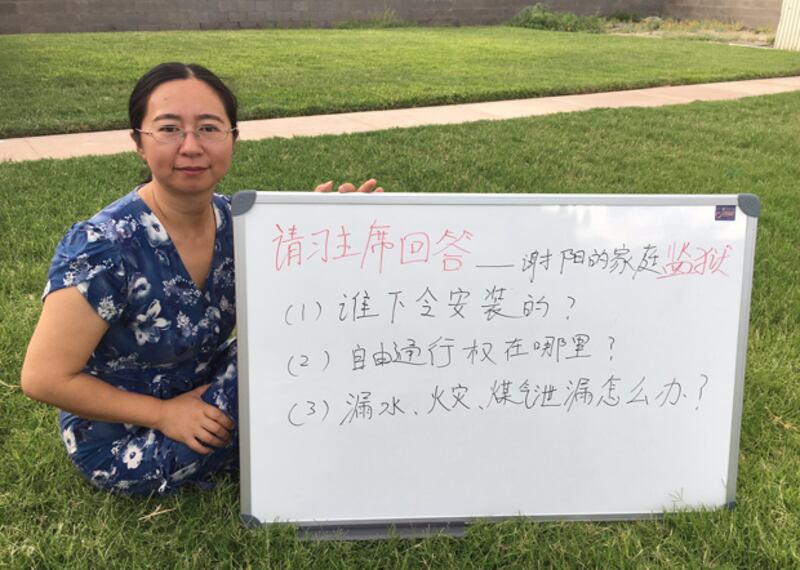 请习主席回答——谢阳的家庭监狱
(1) 谁下令安装的?
(2) 自由通行权在哪里?
(3) 漏水、火灾、煤气泄漏怎么办?